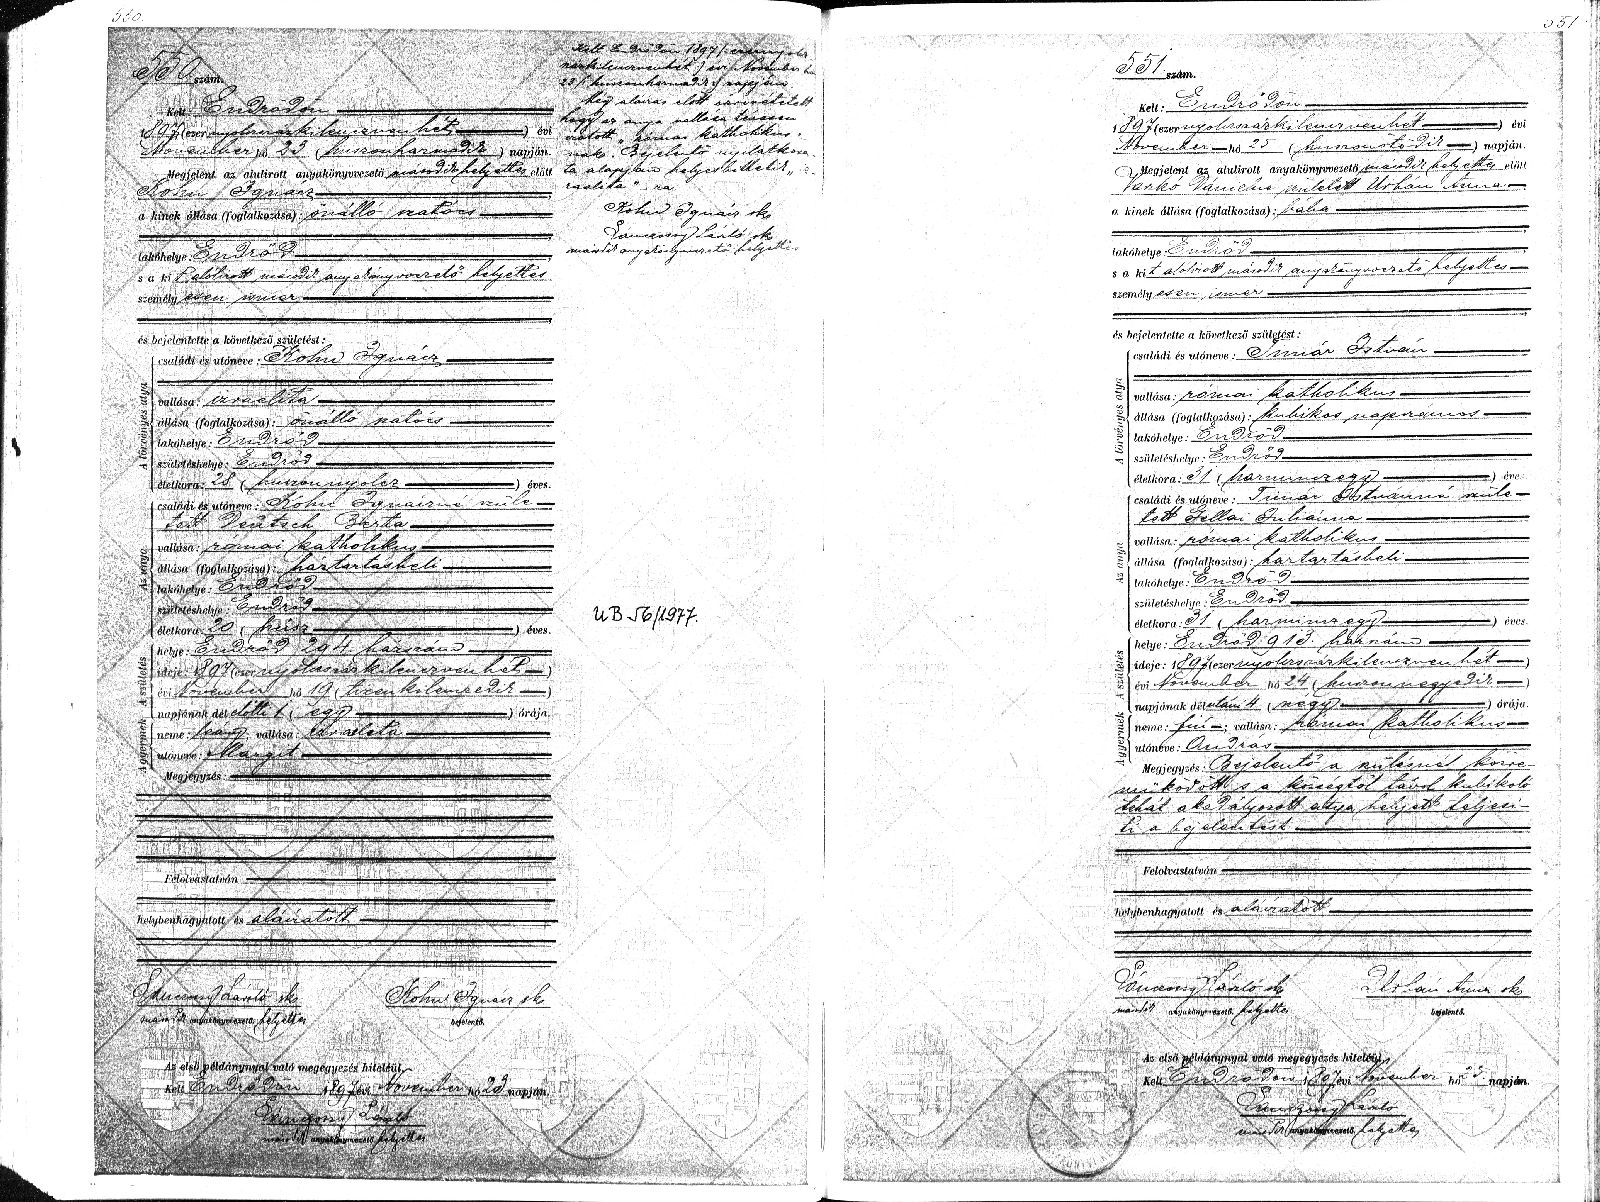 550.
550 szám.
Kelt: Endrődön
1897 (ezernyolcszázkilencvenhét) évi
November hó 23 (huszonharmadik) napján.
Megjelent az alulirott anyakönyvvezető második helyettes előtt
Kohn Ignácz
a kinek állása (foglalkozása): önálló szabó
lakóhelye: Endrőd
s a kit alólirott második anyakönyvvezető helyettes
személyesen ismer
és bejelentette a következő születést:
A törvényes atya
családi és utóneve: Kohn Ignácz
vallása: izraelita
állása (foglalkozása): önálló
lakóhelye: Endrőd
születéshelye: Endrőd
életkora: 28 (huszonnyolcz) éves.
Az anya
családi és utóneve: Kohn Ignáczné szüle-
tett Deutsch Berta
vallása: római katholikus
állása (foglalkozása): háztartásbeli
lakóhelye: Endrőd
születéshelye: Endrőd
életkora: 20 (húsz) éves.
A születés
helye: Endrőd 294 házszám
ideje: 1897 (ezernyolcszázkilencvenhét)
évi November hó 19 (tizenkilenczedik)
napjának délelőtti 1 (egy) órája.
A gyermek
neme: leány; vallása: izraelita
utóneve: Margit
Megjegyzés:
Felolvastatván
helybenhagyatott és aláiratott
László sk
második anyakönyvvezető helyettes
Kohn Ignácz sk
bejelentő.
Az első példánynyal való megegyezés hiteléül,
Kelt Endrődön 1897 évi November hó 23 napján.
László
második anyakönyvvezető helyettes
Kelt Endrődön 1897 (ezernyolcz-
százkilencvenhét) évi November hó
23 (huszonharmadik) napján.
Még aláirás előtt
hogy az anya vallása tévesen
iratott "római katholikus-
nak". Bejelentő nyilatkoza-
ta alapján helyesbittetik "iz-
raelita"-ra
Kohn Ignácz sk
László sk
második anyakönyvvezető helyettes
UB 56/1977.
551
551 szám.
Kelt: Endrődön
1897 (ezernyolcszázkilencvenhét) évi
November hó 25 (huszonötödik) napján.
Megjelent az alulirott anyakönyvvezető második helyettes előtt
született Urbán Anna
a kinek állása (foglalkozása): bába
lakóhelye: Endrőd
s a kit alólirott második anyakönyvvezető helyettes
személyesen ismer
és bejelentette a következő születést:
A törvényes atya
családi és utóneve: Timár István
vallása: római katholikus
állása (foglalkozása): kubikos napszámos
lakóhelye: Endrőd
születéshelye: Endrőd
életkora: 31 (harminczegy) éves.
Az anya
családi és utóneve: Timár Istvánné szüle-
tett Gellai Juliánna
vallása: római katholikus
állása (foglalkozása): háztartásbeli
lakóhelye: Endrőd
születéshelye: Endrőd
életkora: 31 (harminczegy) éves.
A születés
helye: Endrőd 913 házszám
ideje: 1897 (ezernyolcszázkilencvenhét)
évi November hó 24 (huszonnegyedik)
napjának délutáni 4 (négy) órája.
A gyermek
neme: fiú; vallása: római katholikus
utóneve: András
Megjegyzés: Bejelentő a szülésnél közre-
működött s a községtől távol kubikoló
tehát akadályozott atya helyett teljesi-
ti a bejelentést.
Felolvastatván
helybenhagyatott és aláiratott
László sk
második anyakönyvvezető helyettes
Urbán Anna sk
bejelentő.
Az első példánynyal való megegyezés hiteléül,
Kelt Endrődön 1897 évi November hó 25 napján.
László
második anyakönyvvezető helyettes